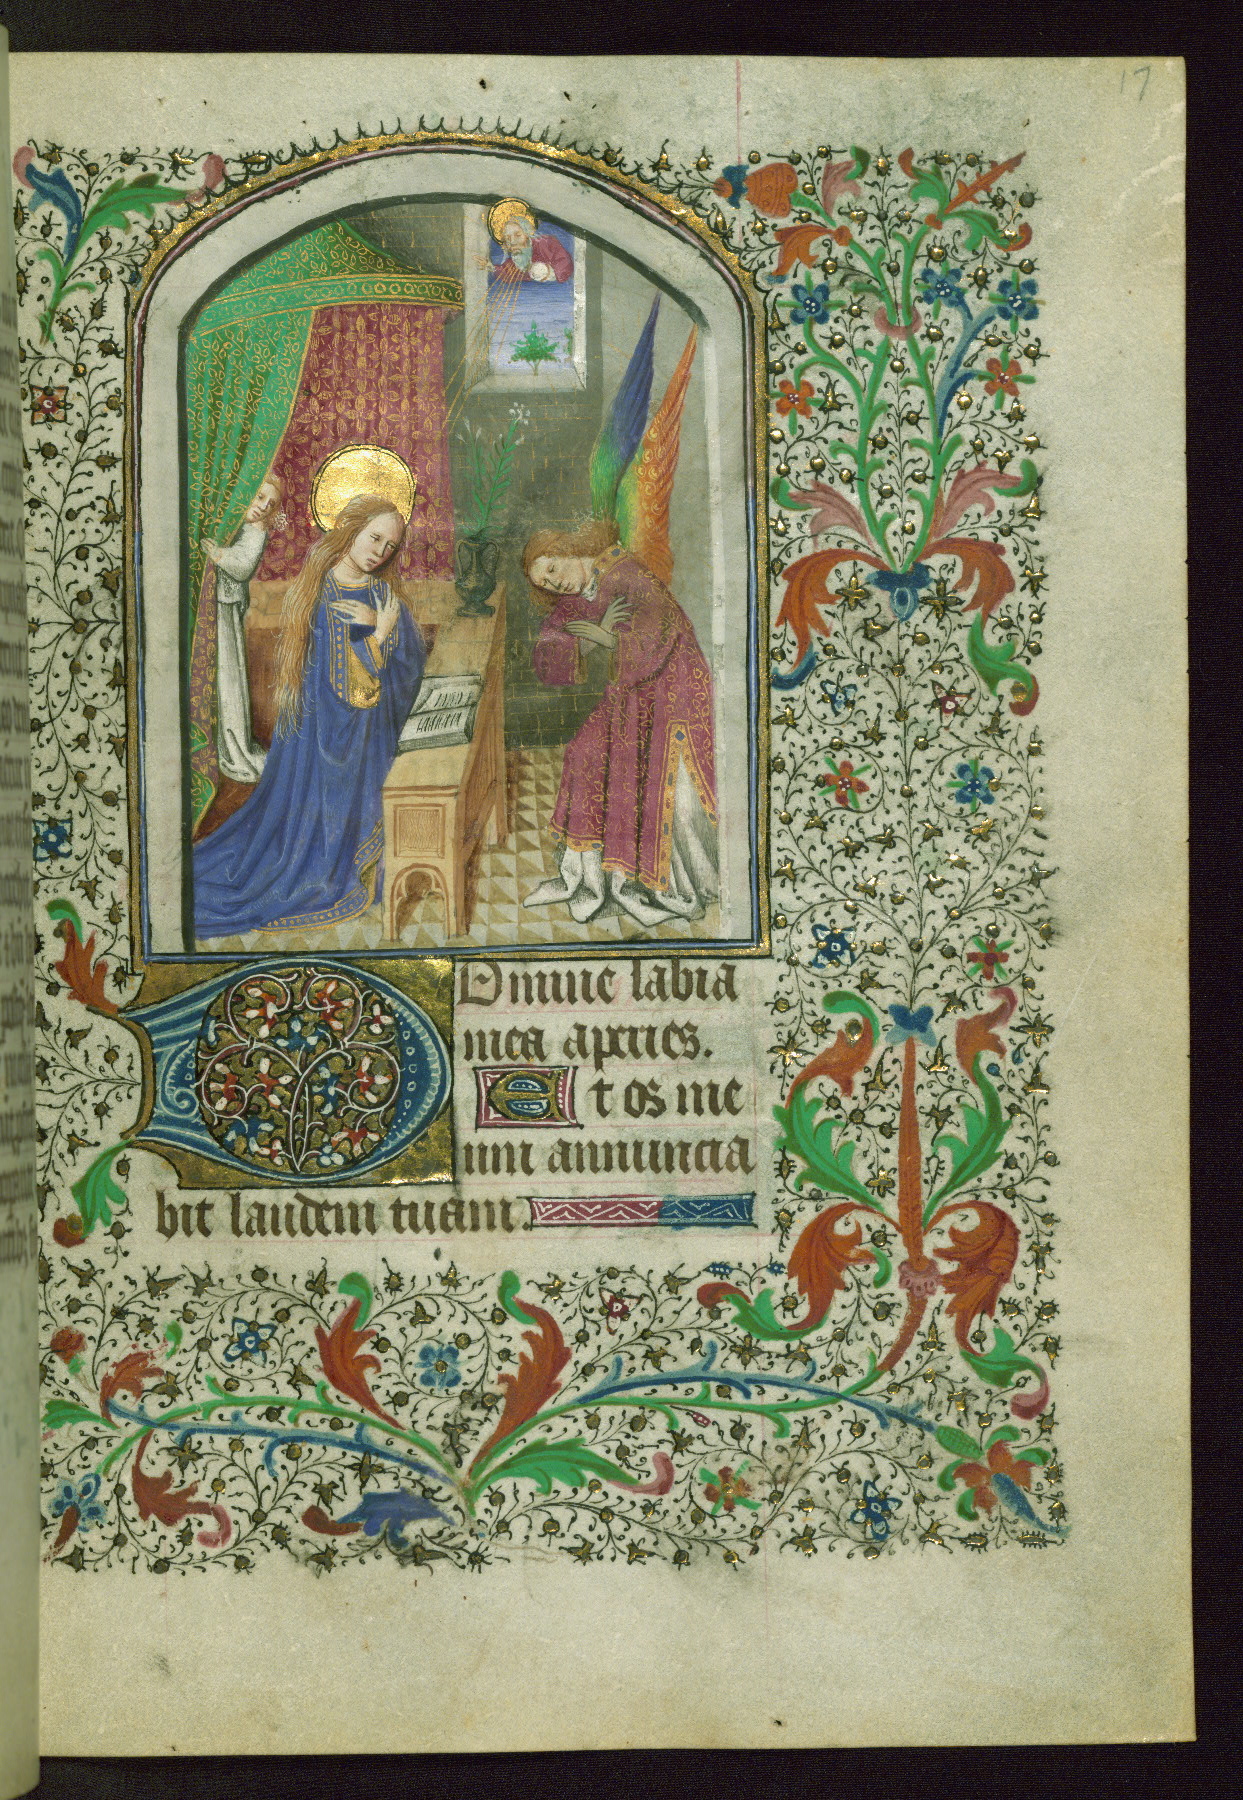 17
Domine labia
mea aperies.
Et os me
um annuncia
bit laudem tuam.